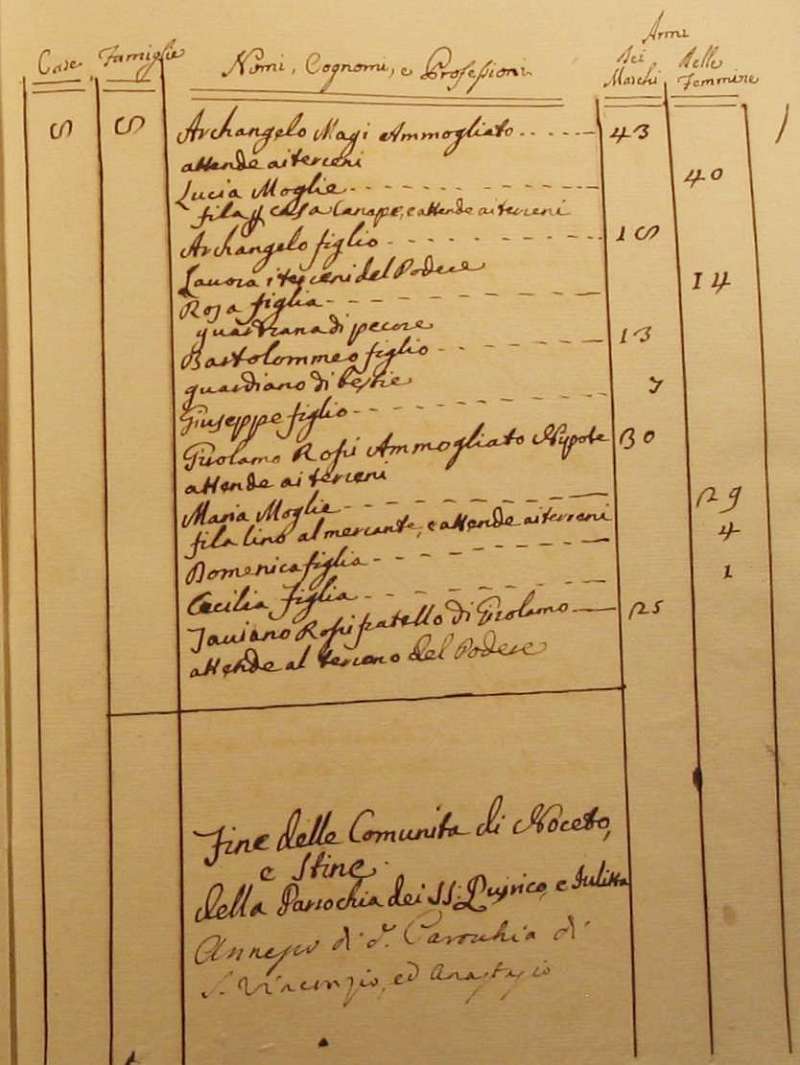 Case Famiglie Nomi, Cognomi, e Professioni Anni dei Maschi delle Femmine
5 5 Archangelo Magi Ammogliato 43
attende ai terreni
Lucia Moglie 40
fila p casa Canape, e attende ai terreni
Archangelo figlio 15
Lauora i terreni del Podere
Rosa figlia 14
guardiana di pecore
Bartolommeo figlio 13
guardiano di bestie
Giuseppe figlio 7
Girolamo Rossi Ammogliato Nipote 30
attende ai terreni
Maria Moglie 29
fila lino al mercante, e attende ai terreni
Domenica figlia 4
Cecilia figlia 1
Rossi fratello di Girolamo 25
attende al terreno del Podere
Fine delle Comunita di Noceto,
e Stine
della Parrochia dei SS: Quirico, e Iulitta
Annesso di d. Parochia di
S. Vincenzio, ed Anastasio